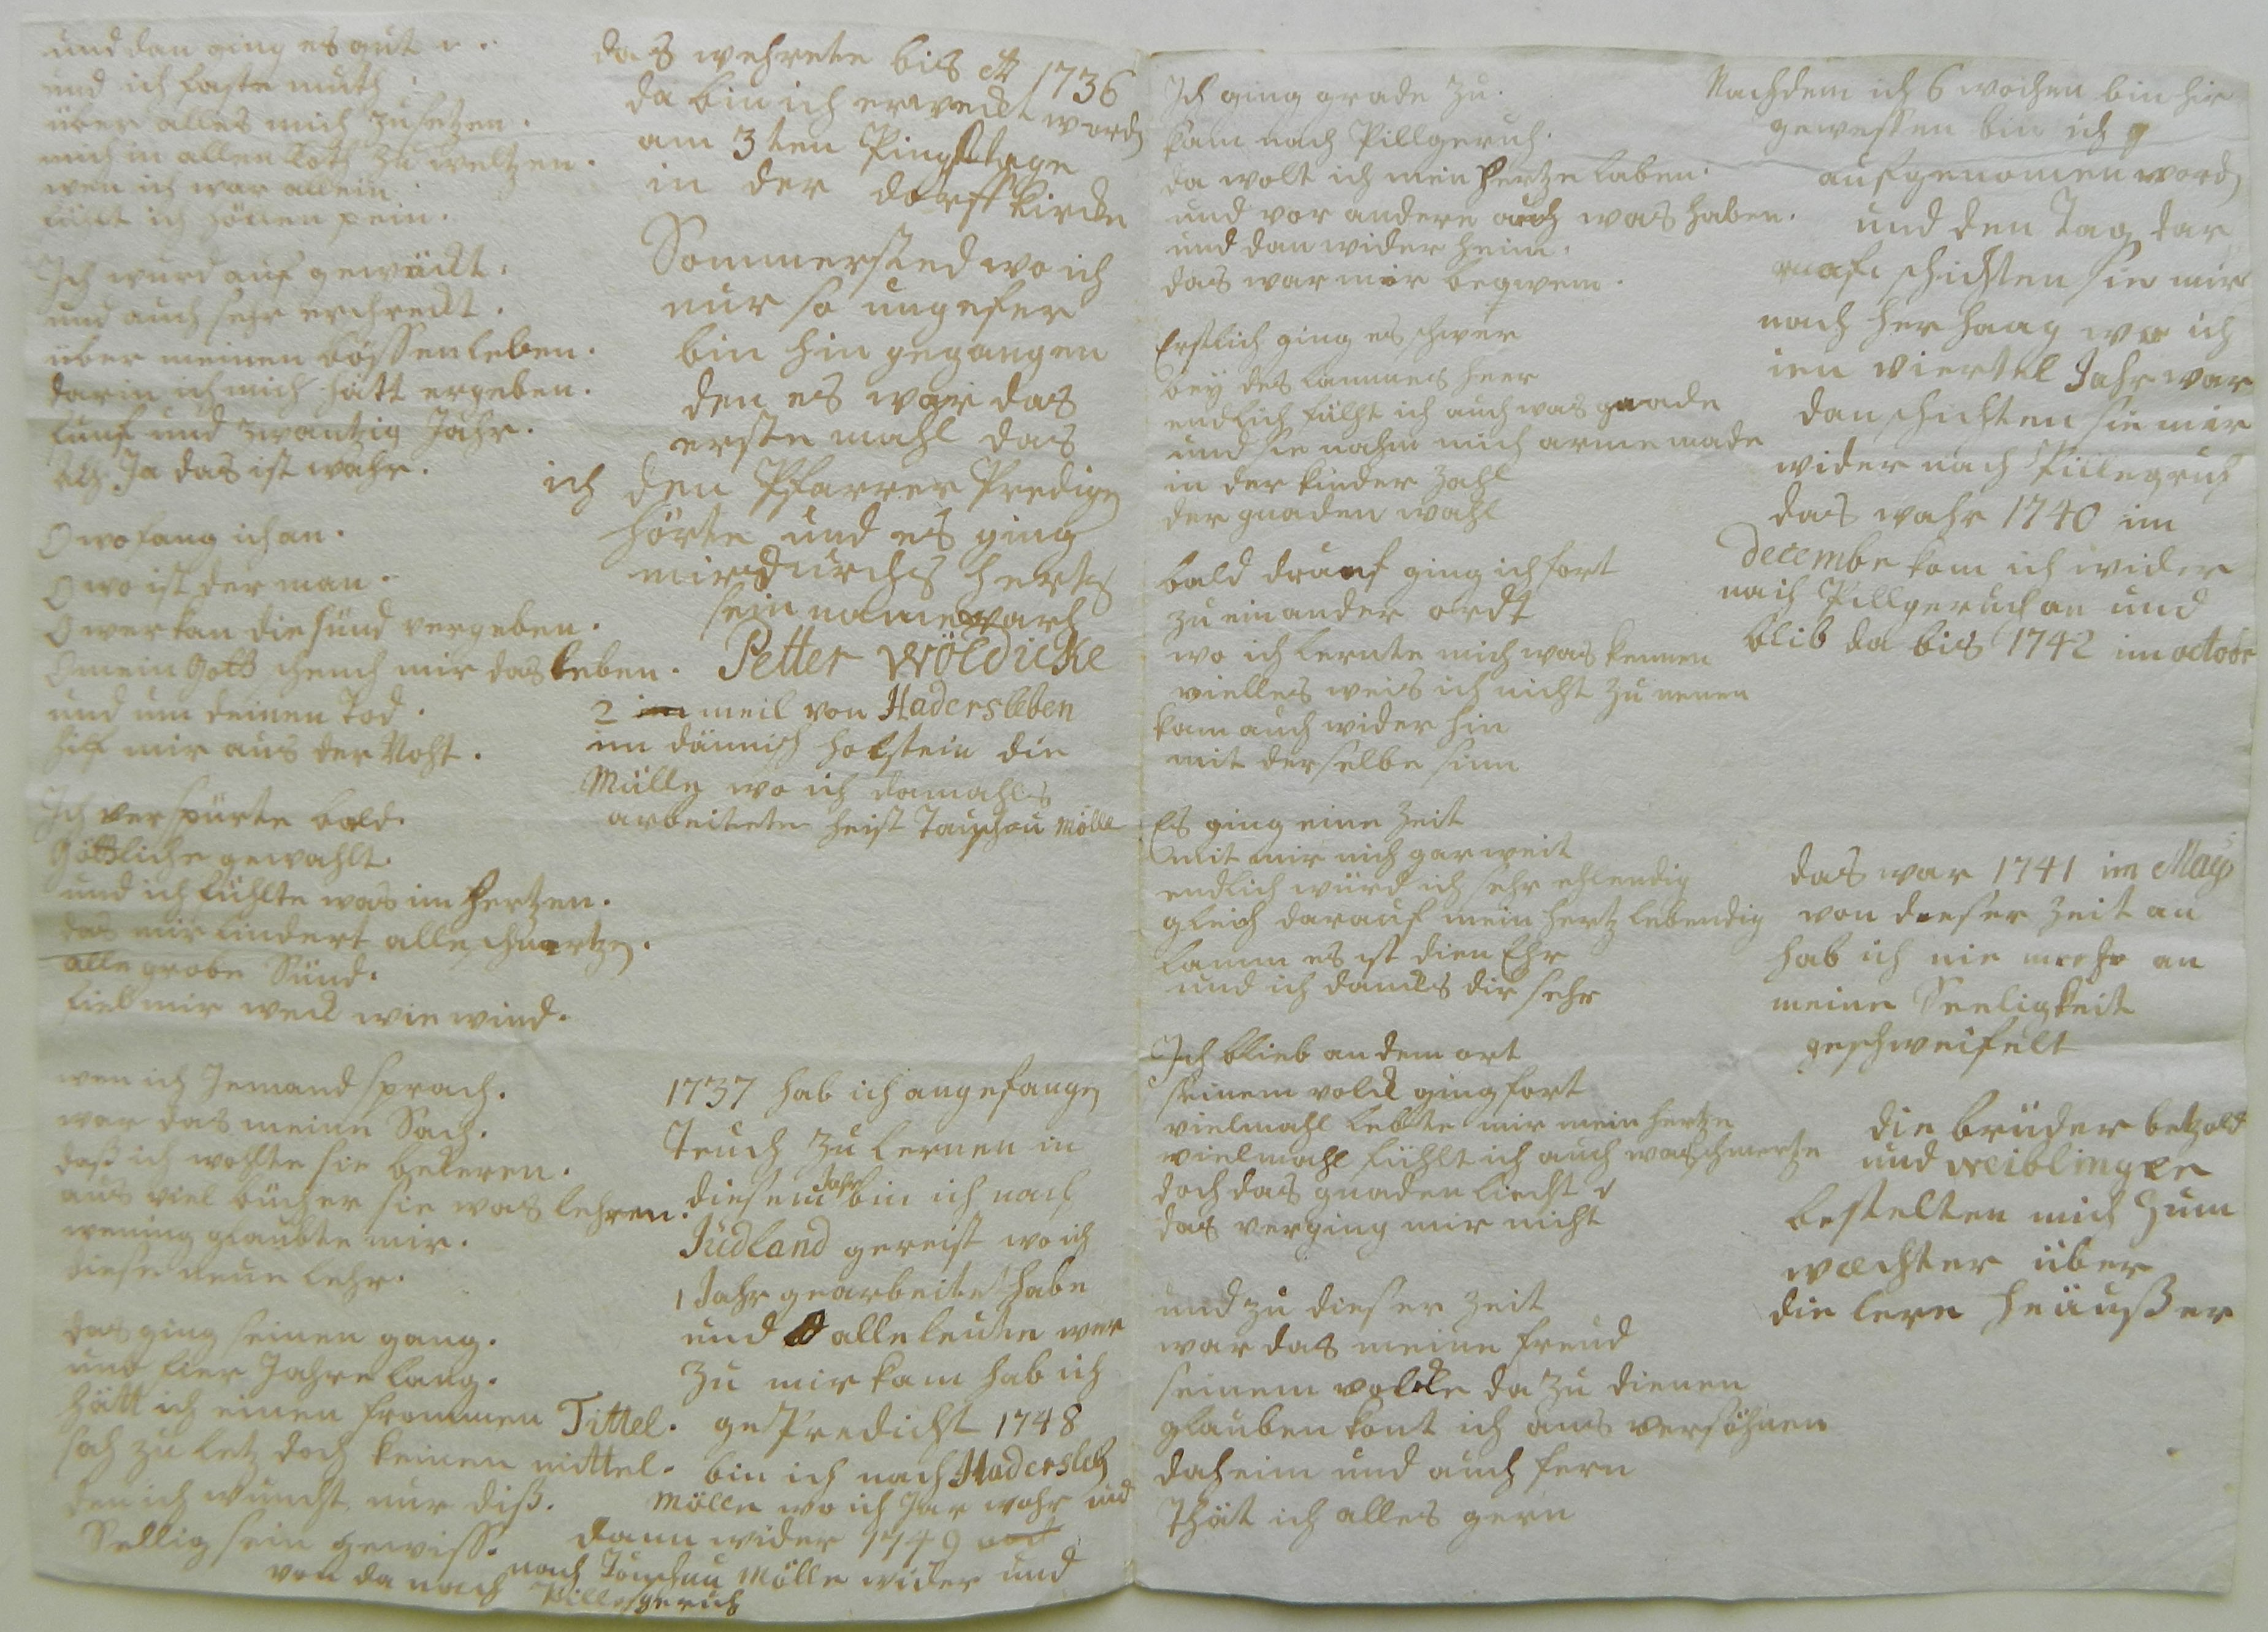 und dan ging es gut
und ich faste muth
über alles mich zu setzen.
mich in allen Koth zu weltzen.
wen ich war allein
fühlt ich höllen pein.
Ich wurd auf gewäckt.
und auch sehr erchreckt.
über meinen bössen leben.
darin ich mich hatt ergeben.
fünf und zwantzig Jahr.
Ach Ja das ist wahr.
O wo fang ich an.
O wo ist der man.
O wer kan die sünd vergeben.
O mein Gott schenck mir das leben.
und um deinen Tod.
hilf mir aus der Noht.
Ich verspürte bald.
Göttliche gewahlt.
und ich fühlte was im Hertzen.
das mir lindert alle schmertzen.
alle grobe Sünd.
fiel mir weck wie wind.
wen ich Jemand sprach.
war das meine Sach.
daß ich wohlte sie bekeren.
aus viel bücher sie was lehren.
wening glaubte mir.
diese neue lehr.
das ging seinen gang.
und fier Jahre lang.
hätt ich einen frommen Tittel.
sah zu letz doch keinen mittel.
den ich wüncht nur diß.
Sellig sein gewiss.
das wehrete bis Ao 1736
da bin ich erweckt word
am 3ten Pingsttage
in der dorff kirche
Sommersted wo ich
nur so ungefer
bin hin gegangen
den es war das
erste mahl das
ich den Pfarrer Predigen
hörte und es ging
mir durchs hertz
sein name warh
Petter Wöldicke
2 meil von Hadersleben
im dännisch holstein die
Mülle wo ich damahls
arbeitete heist Tauschau mölle
1737 hab ich angefangen
Teuch zu lernen in
diesem Jahr bin ich nach
Jüdland gereist wo ich
1 Jahr gearbeitet habe
und alle leute wer
zu mir kam hab ich
gePredicht 1748
bin ich nach Hadersleb
mölle wo ich Jar wahr und
dann wider 1749
nach Tauschau Mölle wider und
von da nach Pillegeruh
Ich ging grade zu.
kam nach Pillgeruh.
da wolt ich mein Hertze laben.
und vor andere auch was haben.
und dan wider heim.
das war mir beqwem.
Erstlich ging es schwer
bey des lammes heer
endlich fühlt ich auch was gnade
und sie nahm mich arme made
in der kinder zahl
der gnaden wahl
bald drauf ging ich fort
zu ein ander ordt
wo ich lernte mich was kennen
vielles weis ich nicht zu nenen
kam auch wider hin
mit derselbe sinn
Es ging eine zeit
mit mir nich gar weit
endlich würd ich sehr ehlendig
gleich darauf mein hertz lebendig
Lamm es ist dein Ehr
und ich dancks dir sehr
Ich blieb an dem ort
seinem volck ging fort
vielmahl lebte mir mein hertze
vielmahl fühlt ich auch was schmertze
doch das gnaden liecht
das verging mir nicht
und zu dieser zeit
war das meine freud
seinem volcke da zu dienen
glauben kont ich ans versöhnen
daheim und auch fern
Thät ich alles gern
Nachdem ich 6 wochen bin hir
gewessen bin ich
aufgenomen word
und den Tag dar
auf schichten sie mir
nach her haag wo ich
ien viertel Jahr war
dan schichten sie mir
wider nach Pillegruh
das wahr 1740 im
decembe kom ich wider
nach Pillgeruh an und
blib da bis 1742 im octobr
das war 1741 im May
von dieser zeit an
hab ich nie mehr an
meine Seeligkeit
geschweifelt
die brüder betzold
und weiblinger
bestelten mich zum
wächter über
die lere häußer